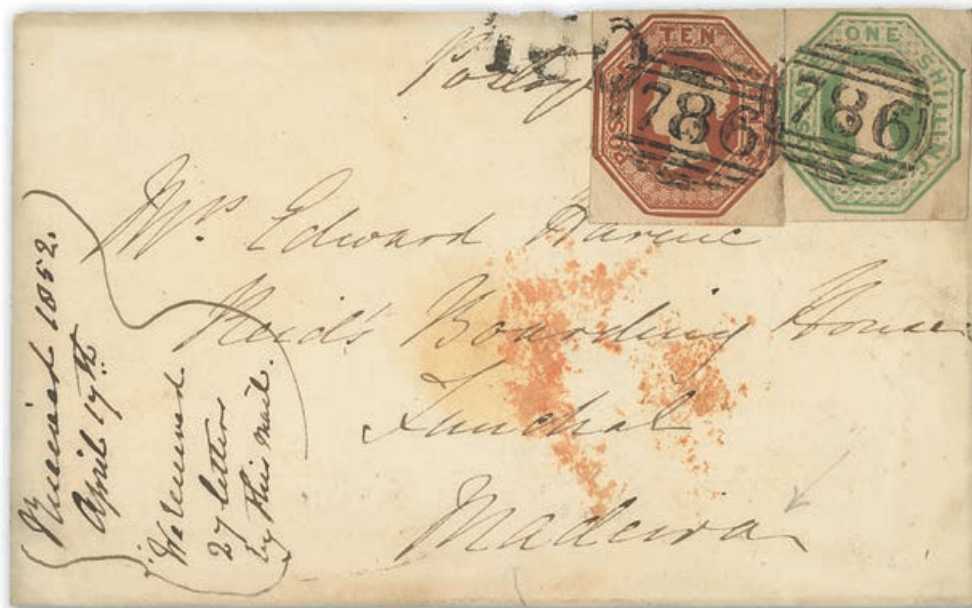 TEN
ONE SHILLING
786
786
Mrs. Edward
Reid's Boarding House
Funchal
Madeira
Received 1852.
April 17th
We received
27 letters
by this mail.